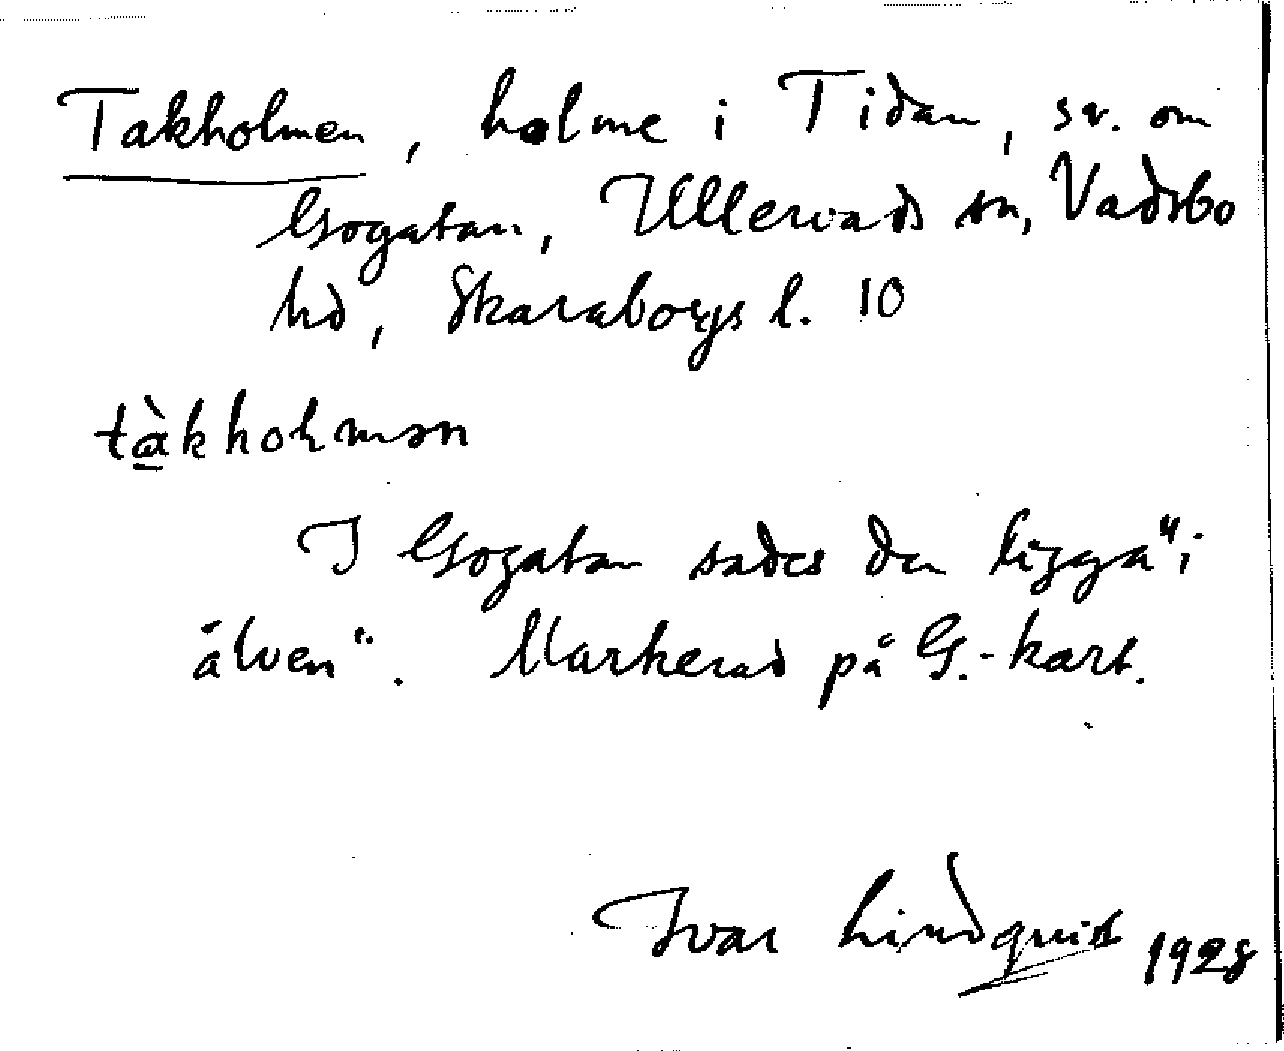 Takholmen, holme i Tidan, sv. om
Gogatan, Ullervads sn, Vadsbo
hd, Skaraborgs l. 10
tàkholmən
I Gogatan sades den ligga "i
älven". Markerad på G.-kart.
Ivar Lindquist 1928